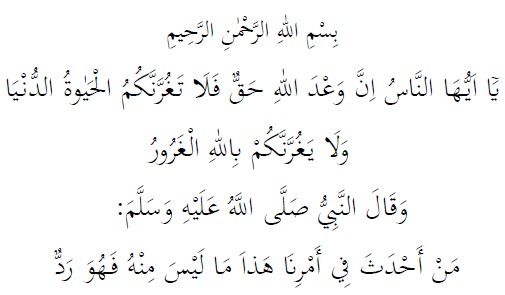 بِسْمِ اللهِ الرَّحْمٰنِ الرَّحِيمِ
يَٓا اَيُّهَا النَّاسُ اِنَّ وَعْدَ اللهِ حَقٌّ فَلَا تَغُرَّنَّكُمُ الْحَيٰوةُ الدُّنْيَا
وَلَا يَغُرَّنَّكُمْ بِاللهِ الْغَرُورُ
وَقَالَ النَّبِيُّ صَلَّى اللَّهُ عَلَيْهِ وَسَلَّمَ:
مَنْ أَحْدَثَ فِي أَمْرِنَا هَذَا مَا لَيْسَ مِنْهُ فَهُوَ رَدٌّ